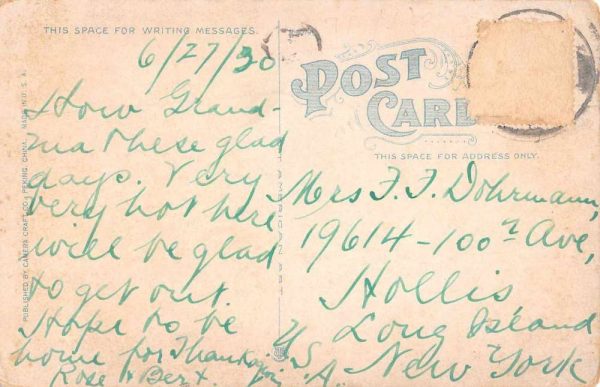 THIS SPACE FOR WRITING MESSAGES.
6/27/30
How Grand-
ma these glad
days. Very
very hot here
will be glad
to get out.
Hope to be
home for Thanksgiving
Rose & Bert.
PUBLISHED BY CAMERA CRAFT CO., PEKING, CHINA. MADE IN U.S.A.
POST
CARD
THIS SPACE FOR ADDRESS ONLY.
Mrs F. F. Dohrmann,
19614-100th Ave,
Hollis,
Long Island
New York
U.S.A.